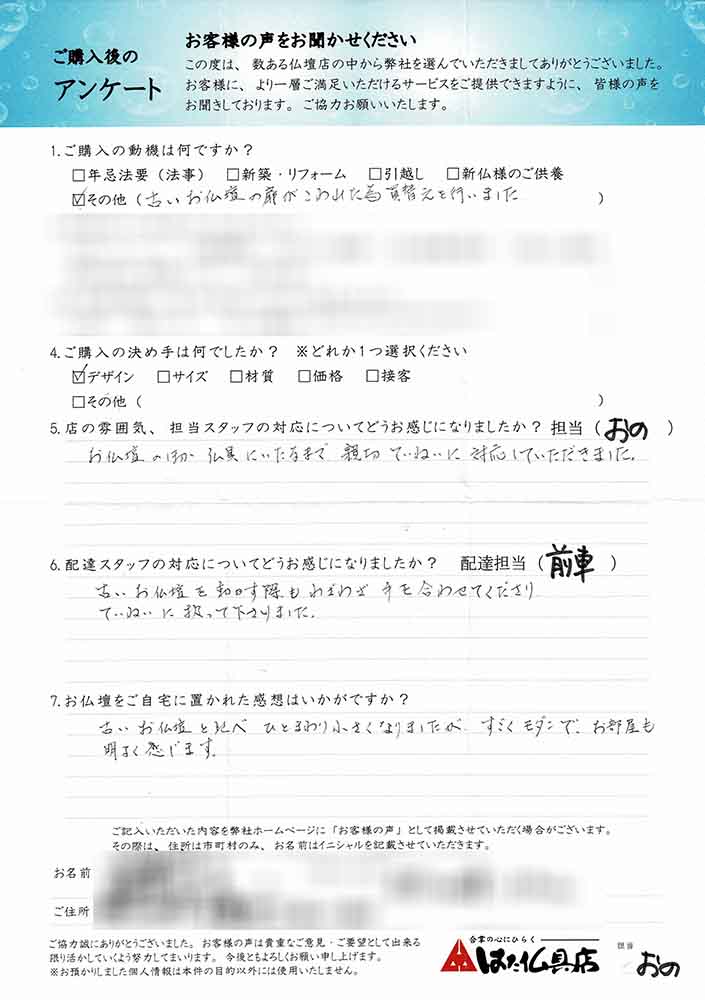 ご購入後の
アンケート
お客様の声をお聞かせください
この度は、数ある仏壇店の中から弊社を選んでいただきましてありがとうございました。
お客様に、より一層ご満足いただけるサービスをご提供できますように、皆様の声を
お聞きしております。ご協力お願いいたします。
1.ご購入の動機は何ですか？
□年忌法要（法事） □新築・リフォーム □引越し □新仏様のご供養
☑その他（古いお仏壇の扉がこわれた為買替えを行いました ）
4.ご購入の決め手は何でしたか？ ※どれか1つ選択ください
☑デザイン □サイズ □材質 □価格 □接客
□その他（ ）
5.店の雰囲気、担当スタッフの対応についてどうお感じになりましたか？担当（おの ）
お仏壇のほか 仏具にいたるまで 親切ていねいに 対応していただきました。
6.配達スタッフの対応についてどうお感じになりましたか？ 配達担当（前車 ）
古いお仏壇を動かす際もわざわざ手を合わせてくださり
ていねいに扱って下さりました。
7.お仏壇をご自宅に置かれた感想はいかがですか？
古いお仏壇と比べ ひとまわり小さくなりましたが、すごくモダンで、お部屋も
明るく感じます。
ご記入いただいた内容を弊社ホームページに「お客様の声」として掲載させていただく場合がございます。
その際は、住所は市町村のみ、お名前はイニシャルを記載させていただきます。
お名前
ご住所
ご協力誠にありがとうございました。お客様の声は貴重なご意見・ご要望として出来る
限り活かしていくよう努力してまいります。今後ともよろしくお願い申し上げます。
※お預かりしました個人情報は本件の目的以外には使用いたしません。
合掌の心にひらく
はた仏具店
担当
おの